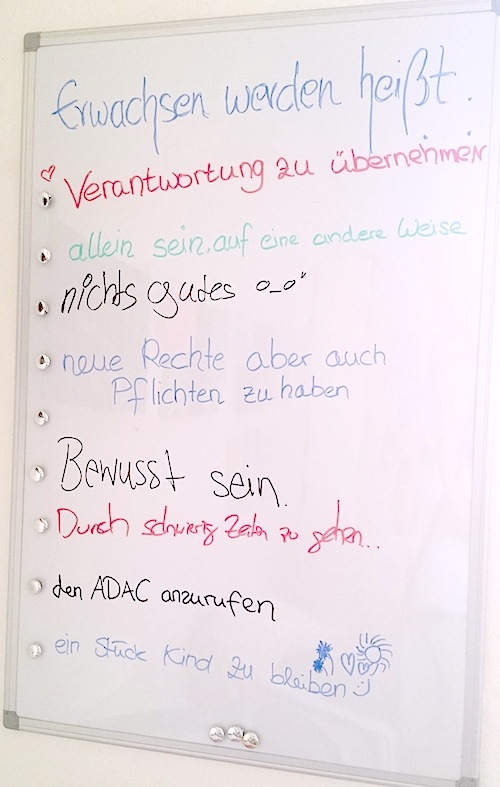 Erwachsen werden heißt.
Verantwortung zu übernehmen
allein sein, auf eine andere Weise
nichts gutes o_o"
neue Rechte aber auch
Pflichten zu haben
Bewusst sein.
Durch schwierig Zeiten zu gehen...
den ADAC anzurufen
ein Stück Kind zu bleiben :)